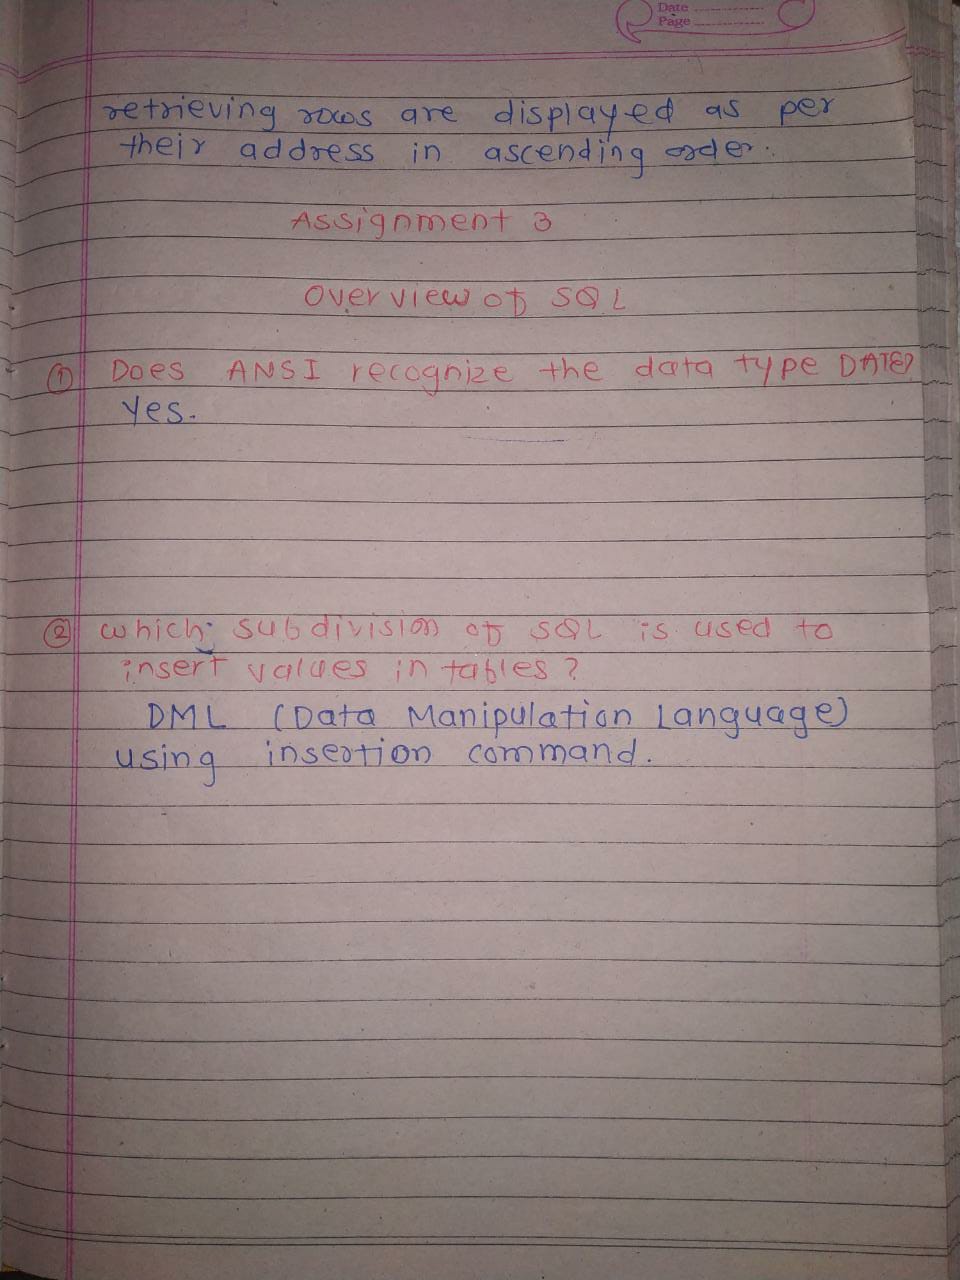 Date
Page
retrieving rows are displayed as per
their address in ascending order.
Assignment 3
Overview of SQL
① Does ANSI recognize the data type DATE?
Yes.
② which subdivision of SQL is used to
insert values in tables?
DML (Data Manipulation Language)
using insertion command.